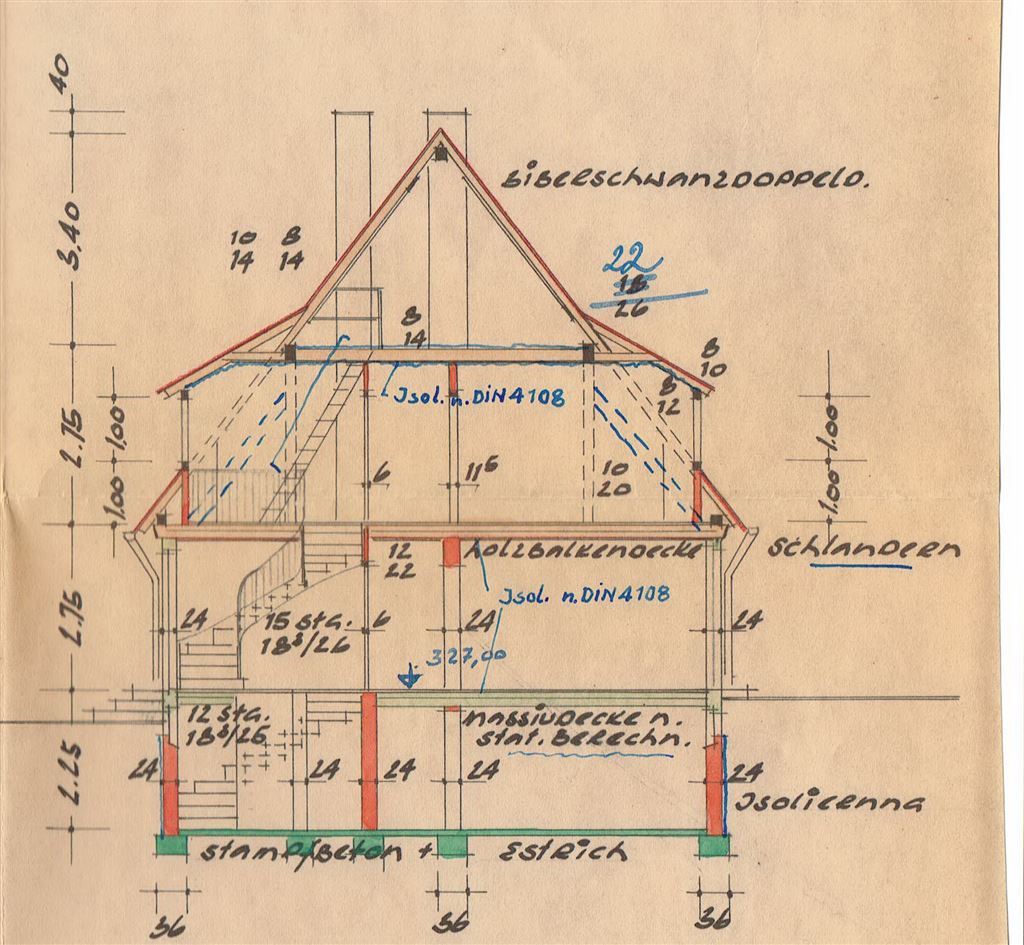 40
3.40
2.75
2.75
2.25
1,00
1,00
BiBERSCHWANZDOPPELD.
10 8
14 14
22
18
26
8
14
8
10
8
12
Jsol. n. DiN 4108
6
11⁵
10
20
1.00
1.00
12
22
HOLZBALKENDECKE
SCHLANDERN
Jsol. n. DiN 4108
24
15 STG.
18³/26
6
24
24
327,00
12 STG.
18³/25
MASSIVDECKE n.
STAT. BERECHN.
24
24
24
24
24
STAMPFBETON + ESTRICH
36
36
36